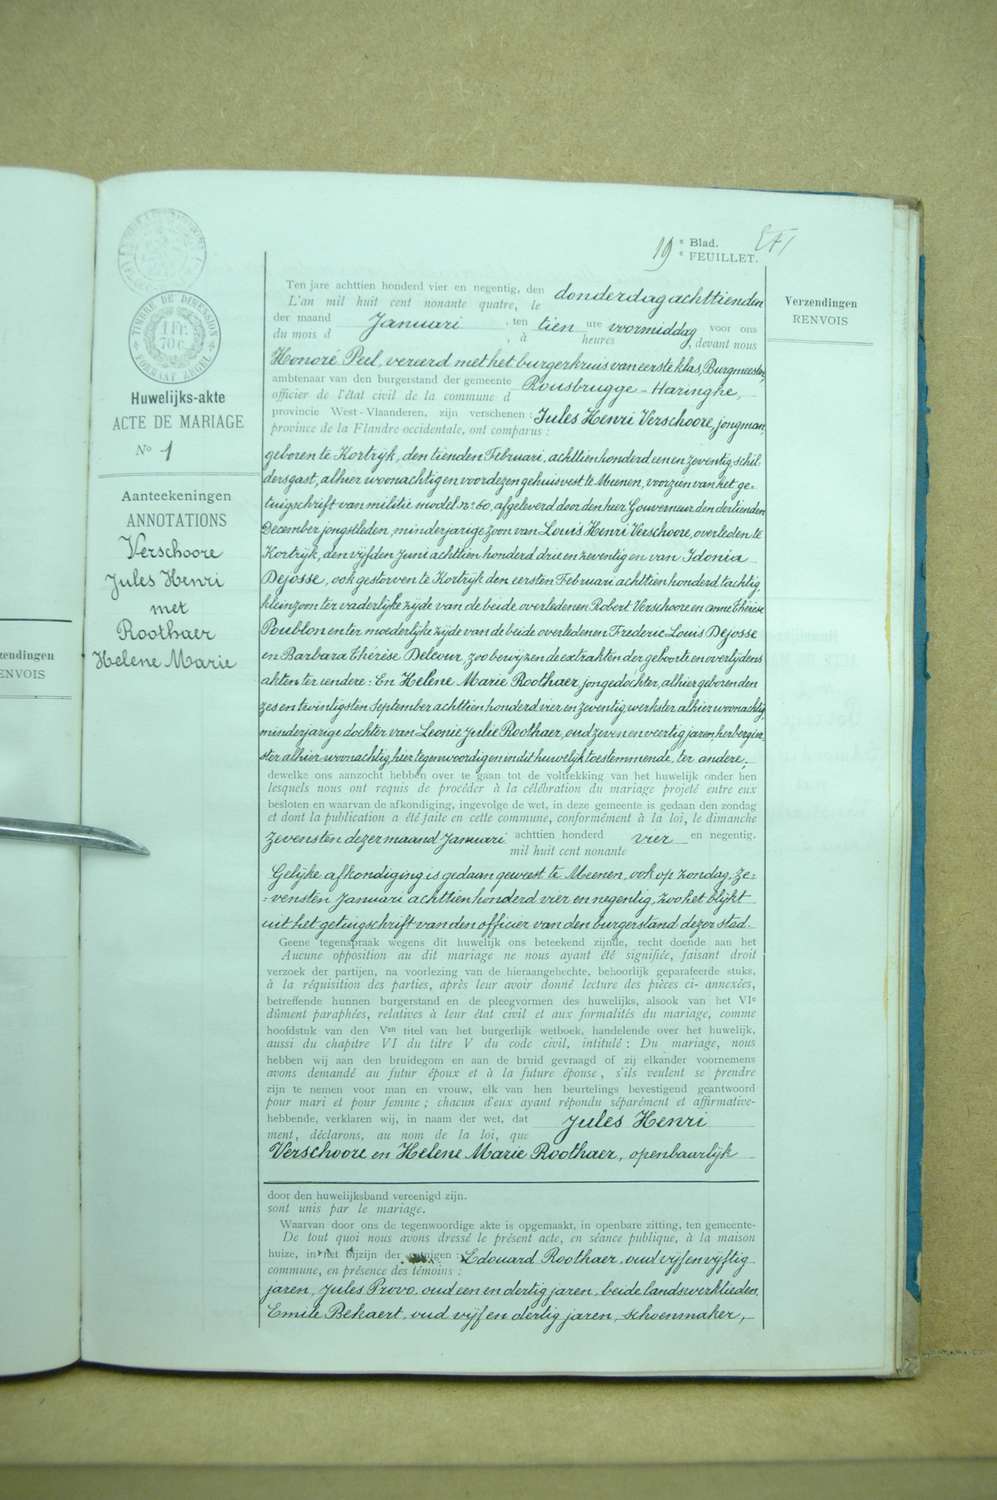 19e Blad.
e FEUILLET.
TIMBRE DE DIMENSION
1 FR. 70 C.
FORMAAT ZEGEL
Huwelijks-akte
ACTE DE MARIAGE
No 1
Aanteekeningen
ANNOTATIONS
Verschoore
Jules Henri
met
Roothaer
Helene Marie
zendingen
ENVOIS
Ten jare achttien honderd vier en negentig, den donderdag achttienden
L'an mil huit cent nonante quatre, le
der maand Januari, ten tien ure voormiddag, voor ons
du mois d , à heures , devant nous
Honoré Peel, vereerd met het burgerkruis van eerste klas, Burgmeester,
ambtenaar van den burgerstand der gemeente Rousbrugge-Haringhe,
officier de l'état civil de la commune d
provincie West-Vlaanderen, zijn verschenen : Jules Henri Verschoore, jongman,
province de la Flandre occidentale, ont comparus :
geboren te Kortryk, den tienden Februari, achttien honderd een en zeventig, schil-
dersgast, alhier woonachtig en voor dezen gehuisvest te Meenen, voorzien van het ge-
tuigschrift van militie model No 60, afgeleverd door den heer Gouverneur den dertienden
December jongstleden, minderjarige zoon van Louis Henri Verschoore, overleden te
Kortrijk, den vijfden Juni achttien honderd drie en zeventig en van Idonia
Dejosse, ook gestorven te Kortrijk den eersten Februari achttien honderd tachtig
kleinzoon ter vaderlijke zijde van de beide overledenen Robert Verschoore en Anne Thérèse
Poublon en ter moederlijke zijde van de beide overledenen Frederic Louis Dejosse
en Barbara Thérèse Delcour, zoo bewijzen de extrakten der geboorte en overlijdens
akten ter eendere : En Helene Marie Roothaer, jongedochter, alhier geboren den
zes en twintigsten September achttien honderd vier en zeventig, werkster alhier woonachtig,
minderjarige dochter van Leonie Julie Roothaer, oud zeven en veertig jaren herbergier-
ster alhier woonachtig, hier tegenwoordig en in dit huwelijk toestemmende, ter andere,
dewelke ons aanzocht hebben over te gaan tot de voltrekking van het huwelijk onder hen
lesquels nous ont requis de procéder à la célébration du mariage projeté entre eux
besloten en waarvan de afkondiging, ingevolge de wet, in deze gemeente is gedaan den zondag
et dont la publication a été faite en cette commune, conformément à la loi, le dimanche
zevensten dezer maand Januari achttien honderd vier en negentig.
mil huit cent nonante
Gelijke afkondiging is gedaan geweest te Meenen, ook op zondag, ze-
-vensten Januari achttien honderd vier en negentig, zoo het blijkt
uit het getuigschrift van den officier van den burgerstand dezer stad.
Geene tegenspraak wegens dit huwelijk ons beteekend zijnde, recht doende aan het
Aucune opposition au dit mariage ne nous ayant été signifiée, faisant droit
verzoek der partijen, na voorlezing van de hieraangehechte, behoorlijk geparafeerde stuks,
à la réquisition des parties, après leur avoir donné lecture des pièces ci-annexées,
betreffende hunnen burgerstand en de pleegvormen des huwelijks, alsook van het VIe
dûment paraphées, relatives à leur état civil et aux formalités du mariage, comme
hoofdstuk van den Ven titel van het burgerlijk wetboek, handelende over het huwelijk,
aussi du chapitre VI du titre V du code civil, intitulé : Du mariage, nous
hebben wij aan den bruidegom en aan de bruid gevraagd of zij elkander voornemens
avons demandé au futur époux et à la future épouse, s'ils veulent se prendre
zijn te nemen voor man en vrouw, elk van hen beurtelings bevestigend geantwoord
pour mari et pour femme ; chacun d'eux ayant répondu séparément et affirmative-
hebbende, verklaren wij, in naam der wet, dat Jules Henri
ment, déclarons, au nom de la loi, que
Verschoore en Helene Marie Roothaer, openbaarlijk
door den huwelijksband vereenigd zijn.
sont unis par le mariage.
Waarvan door ons de tegenwoordige akte is opgemaakt, in openbare zitting, ten gemeente-
De tout quoi nous avons dressé le présent acte, en séance publique, à la maison
huize, in het bijzijn der getuigen : Edouard Roothaer, oud vijf en vijftig
commune, en présence des témoins :
jaren, Jules Provo, oud een en dertig jaren, beide landswerklieden,
Emile Bekaert, oud vijf en dertig jaren, schoenmaker,
Verzendingen
RENVOIS